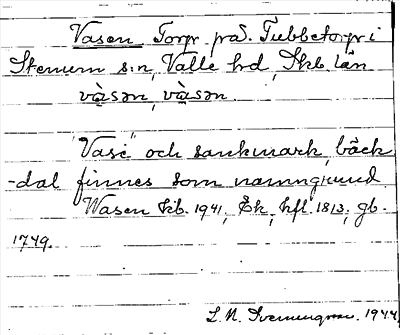 Vasen Torp på Tubbetorp i
Stenum s:n, Valle hd, Skb. län
vàsən, vàsən.
"Vase" och sankmark, bäck
-dal finnes som namngrund
Wasen kb. 1941, Ek, hfl. 1813, gb.
1749.
L. N. 1944